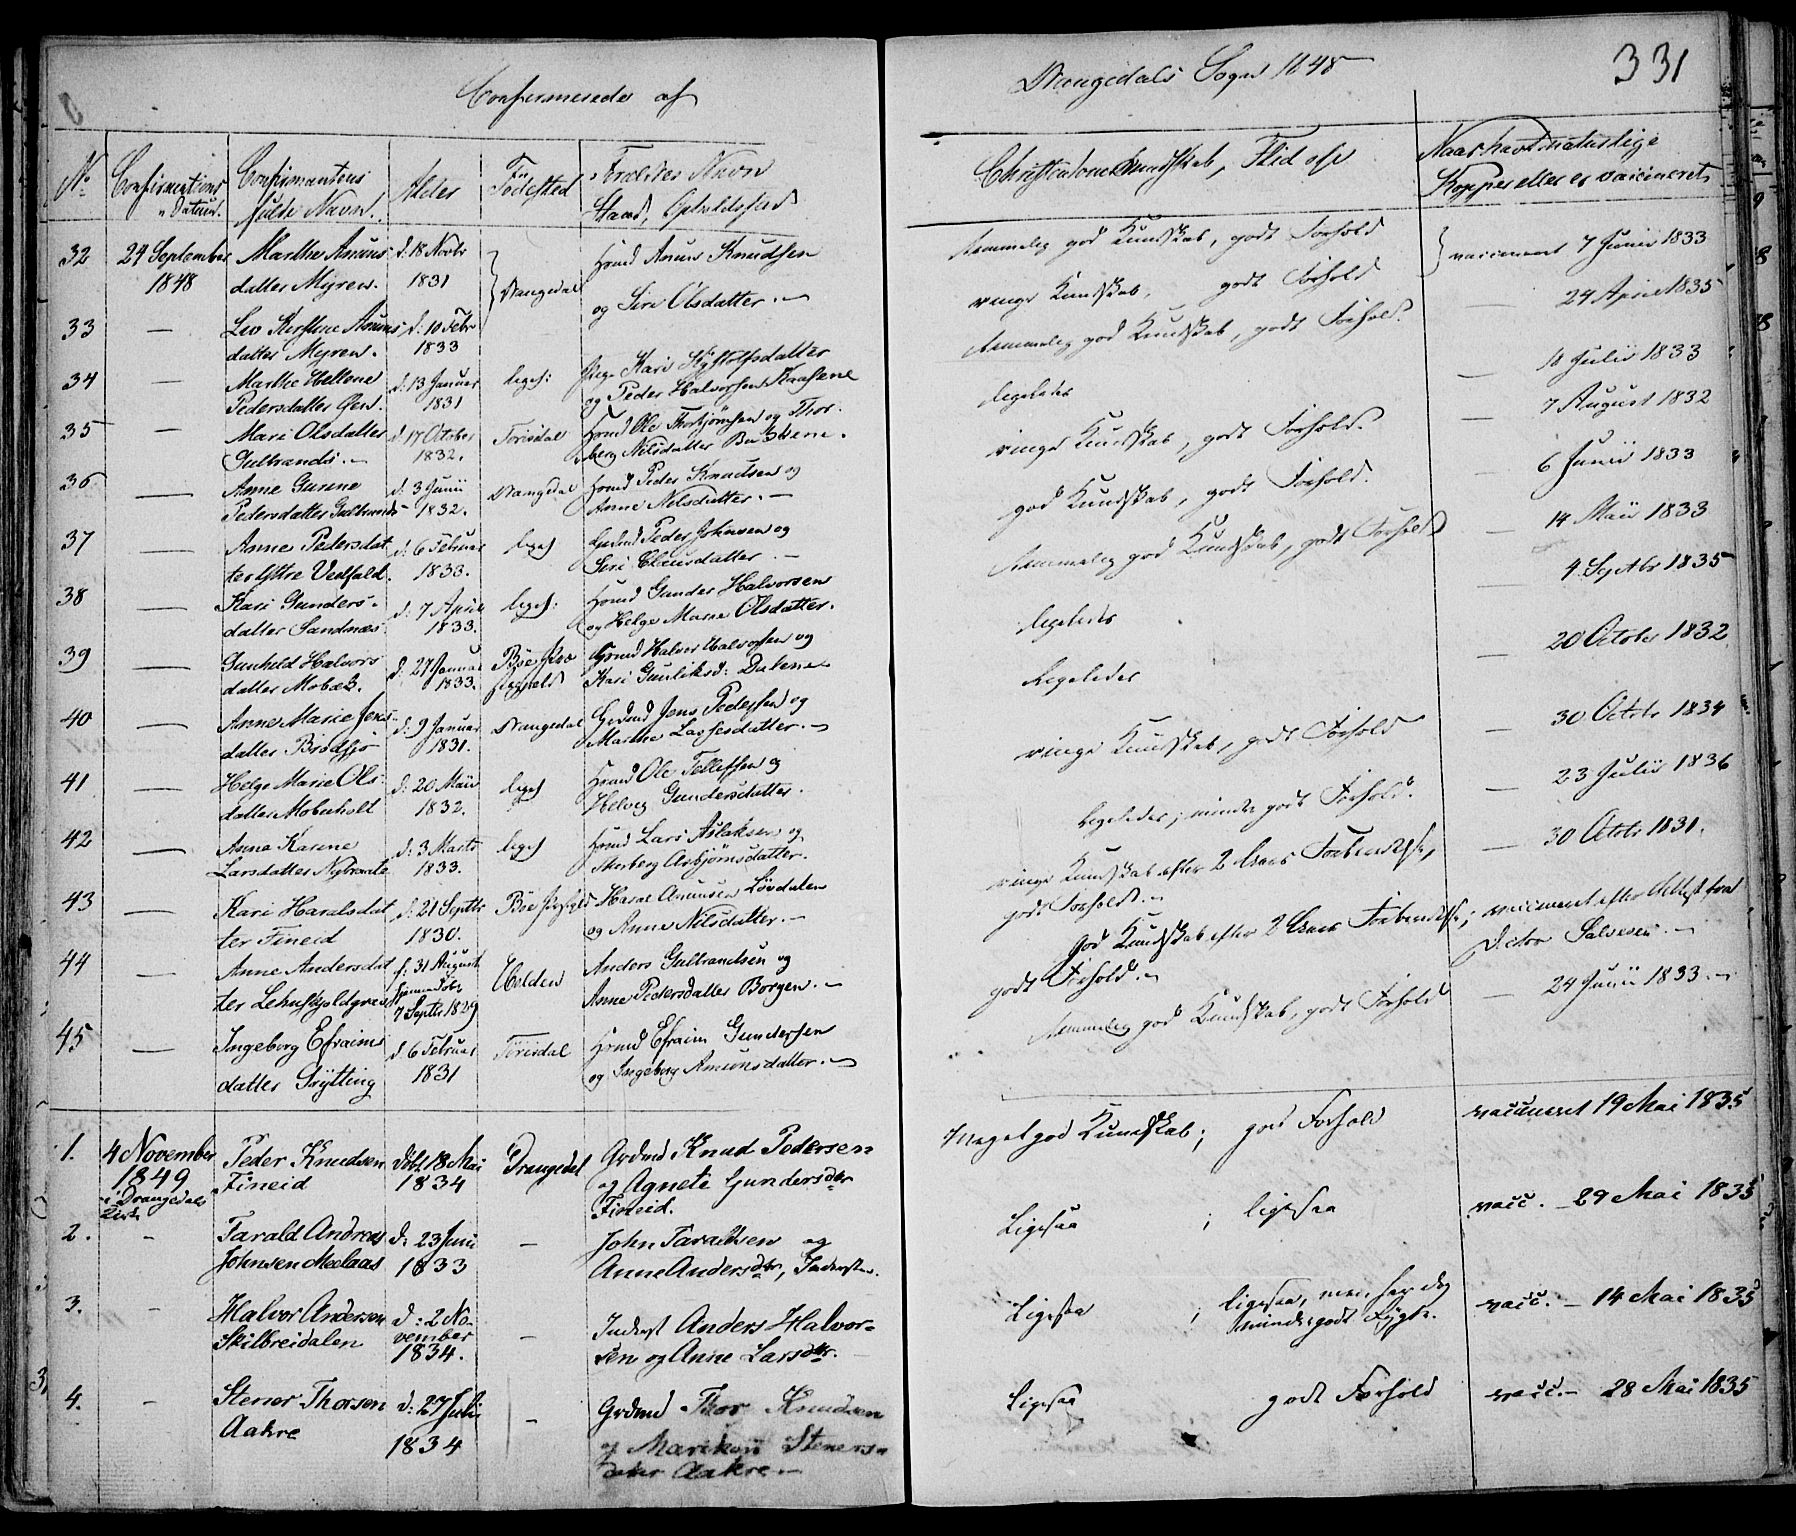 331
Confirmerede af Drangedals Sogn 1848
No. Confirmations Datum. Confirmantens fulde Navn. Alder Fødested Forældres Navn Stand, Opholdsted Christendoms Kundskab, Flid osv Naar havt naturlige Kopper eller er vaccineret
32 24 September 1848 Marthe Anuns datter Myren. d. 18 Novbr 1831 Drangedal Hmd Anun Knudsen og Siri Olsdatter. temmelig god Kundskab, godt Forhold vaccineret 7 Junii 1833
33 — Liv Kirstine Anuns datter Myren. d: 10 Febr 1833 ringe Kundskab, godt Forhold — 24 April 1835
34 — Marthe Hellene Pedersdatter d: 13 Januar 1831 liges: Pige Kari datter og Peder Halvorsen Kaasene temmelig god Kundskab, godt Forhold. — 11 Julii 1833
35 — Mari Olsdatter Gulbrands. d 17 October 1832. Tørisdal Hmd Ole Thorbjørnsen og Thor- berg Nilsdatter ligeledes — 7 August 1832
36 — Anne Gunne Pedersdatter Gulbrands d. 3 Junii 1832. Drangedal Hmd Peder Knudsen og Anne Nilsdatter. ringe Kundskab, godt Forhold. — 6 Junii 1833
37 — Anne Pedersdat ter Yttre Vedfald. d. 6 Februar 1833. liges Peder Johnsen og Siri Clausdatter. god Kundskab, godt Forhold. — 14 Maii 1833
38 — Kari Gunders- datter Sandnæs d: 7 April 1833. liges: Hmd Gunder Halvorsen og Helge Marie Olsdatter. temmelig god Kundskab, godt Forhold — 4 Septbr 1835
39 — Gunhild Halvors datter Mobæk. d. 27 Januar 1833. Bøe Præ stegjeld Grmd Halvor Halvorsen og Kari Gunliksd: Dalene ligeledes — 20 October 1832
40 — Anne Marie Jens- datter Brødsjø d: 9 Januar 1831. Drangedal Grdmd Jens Pedersen og Marthe Lassesdatter. ligeledes — 30 Octobr 1834
41 — Helge Marie Ols datter Moberholt d: 20 Maii 1832. liges Hmd Ole Tellefsen og Helvig Gundersdatter. ringe Kundskab, godt Forhold — 23 Julii 1836
42 — Anne Karine Larsdatter d: 3 Marts 1833. liges Hmd Lars Aslaksen og Arbjørnsdatter. ligeledes, mindre godt Forhold. — 30 Octbr 1831.
43 — Kari Haralsdat ter Fineid d: 21 Septbr 1830. Bøe Harat Anunsen Løvdalen og Anne Nilsdatter. ringe Kundskab efter 2 Aars Forberedelse, godt Forhold. vaccineret efter Attest fra Doctor Salvesen.
44 — Anne Andersdat ter f. 31 August 7 Septbr 1829 Holden Anders Gulbrandsen og Anne Pedersdatter Borgen. god Kundskab efter 2 Aars Forberedelse; godt Forhold. — 24 Junii 1833.
45 — Ingeborg Efraims datter Grytting d 6 Februar 1831 Tørisdal Hmd Efraim Gundersen og Ingeborg Anunsdatter. temmelig god Kundskab, godt Forhold
1. 4 November 1849 i Drangedals Kirke Peder Knudsen Fineid Døbt 18 Mai 1834 Drangedal Grdmd Knud Pedersen og Agnete Gundersdtr Fineid. Meget god Kundskab; godt Forhold vaccineret 19 Mai 1835
2. - Tarald Andreas Johnsen Meelaas d: 23 Juni 1833 — John Taraldsen og Anne Andersdtr, Inderster. Ligesaa ; ligesaa vacc. - 29 Mai 1835
3. - Halvor Andersen Skilbreidalen d: 2 No- vember 1834. — Inderst Anders Halvor- sen og Anne Larsdtr. Ligesaa ; ligesaa, men har dog mindre godt Rygte. vacc. - 14 Mai 1835
4. - Stener Thorsen Aakre d: 27 Juli 1834 — Grdmd Thor Knudsen og Marikari Steners- datter Aakre. Ligesaa godt Forhold vacc. - 28 Mai 1835